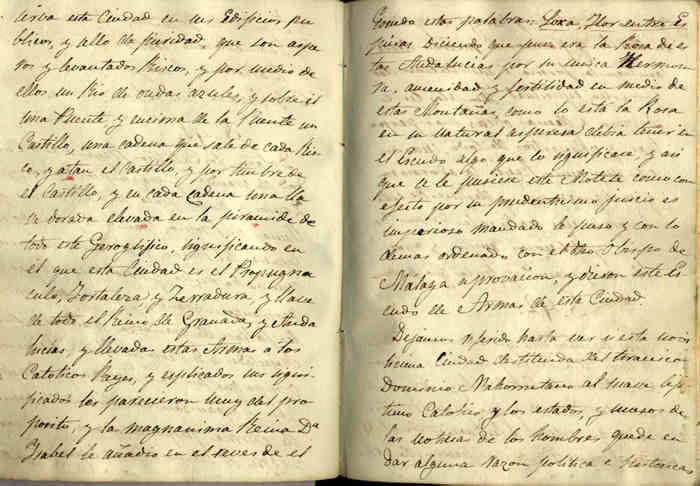 usiba esta Ciudad en sus Edificios pu
blicos, y sello de puridad, que son aspe
ros y levantados Riscos, y por medio de
ellos un Rio de ondas azules, y sobre el
una Puente y encima de la Puente un
Castillo, una cadena que sale de cada Ris
co, y atan el Castillo, y por timbre de
el Castillo, y en cada cadena una lla
ve dorada elevada en la piramide de
todo este Geroglifico, significando en
el que esta Ciudad es el Propugna
culo, Fortaleza y Zerradura, y llave
de todo el Reino de Granada, y Anda
lucias, y llevada estas Armas a los
Catolicos Reyes, y esplicados sus signi-
ficados les parecieron muy del pro
posito, y la magnanima Reina Dª
Isabel le añadio en el reves de el
Escudo estas palabras: Loxa, Flor entre Es
pinas. Diciendo que pues era la Rosa de es
tas Andalucias por su unica Hermosu
ra, amenidad y fertilidad en medio de
estas Montañas, como lo está la Rosa
en su natural aspereza debia tener en
el Escudo algo que lo significase y asi
que se le pusiere este Motete como con
efecto por su prudentisimo juicio es
imperioso mandado se puso y con lo
demas ordenado con el Obispo de
Málaga aprovacion, y dieron este Es
cudo de Armas de esta Ciudad.
Dejamos referido hasta ver a esta nobi
lisima Ciudad destituida del tiranico
Dominio Mahometano al suave
Catolico y los estados, y
las noticia de los hombres quede en
dar alguna razon politica e historica